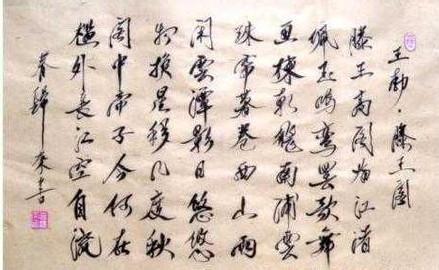 王勃·滕王阁
滕王高阁临江渚
佩玉鸣鸾罢歌舞
画栋朝飛南浦雲
珠帘暮卷西山雨
闲雲潭影日悠悠
物换星移几度秋
阁中帝子今何在
槛外长江空自流
春歸来書